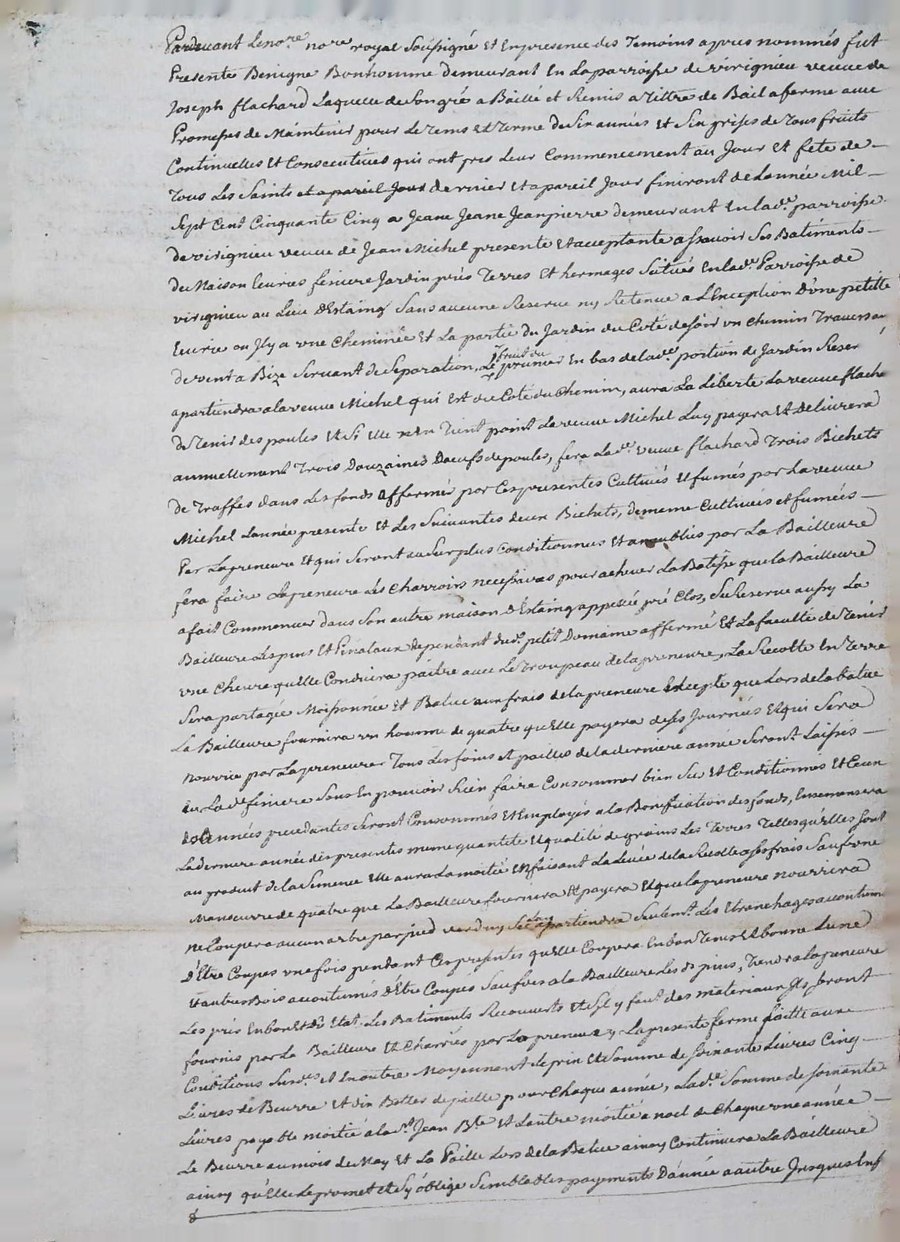 Pardevant Lenore. nore. royal Soussigné Et Enpresence des Temoins apres nommés fut
Presente Benigne Bonhomme demeurant En La parroisse de virignieu veuve de
Joseph flachard Laquelle de Son gré a Baillé et Remis a Tiltre de Bail a ferme avec
Promesses de Maintenir pour Le Tems Et Terme de Six années Et Six prises de Tous fruits
Continuelles Et Consecutives qui ont pres Leur Commencement au Jour Et fete de
Tous Les Saints et apareil Jour dernier Et apareil Jour finiront de Lannée Mil
Sept Cent Cinquante Cinq a Jeane Jeane Jeanpierre demeurant En lade. parroisse
de virignieu veuve de Jean Michel presente Et acceptante assavoir Ses Batiments
de Maison Ecuries feniere Jardin prés Terres Et hermages Scitués En lade. Parroisse de
virignieu au Lieu D'Estaing Sans aucune Reserve ny Retenue a L'Exception D'une petitte
Ecurie ou Jl y a vne Cheminée Et La partie du Jardin du Coté de Soir vn Chemin Traversan
de vent a Bize Servant de Separation, Le fruit du prunier En bas de lade. portion de Jardin Reser
apartiendra a la veuve Michel qui Est du Coté du Chemin, aura La Liberté La veuve flacha
de Tenir des poules Et Si Elle n'En Tient point La veuve Michel Luy payera Et delivrera
annuellement Trois Douzaines Doeufs de poules, fera Lade. veuve flachard Trois Bichets
de Truffes dans Les fonds affermés par Ces presentes Cultivés Et fumés par La veuve
Michel Lannée presente Et Les Suivantes deux Bichets, de meme Cultivées et fumées
Par La preneure Et qui Seront au Surplus Conditionnés Et par La Bailleure
fera faire La preneure Les Charroirs necessaires pour achever La Batisse que La Bailleure
a fait Commencer dans Son autre maison D'Estaing appellée pré Clos, Se Reserve aussy La
Bailleure Les pins Et dependant dud. petit Domaine affermé Et La faculté de Tenir
vne Chevre qu'Elle Conduira paitre avec Le Troupeau de la preneure, La Recolte En Terre
Sera partagée Moissonnée Et Batue aux frais de la preneure Excepté que Lors de la batue
La Bailleure fournira vn homme de quatre qu'Elle payera de Ses Journées Et qui Sera
nourrie par La preneure Tous Les foins Et pailles de la derniere année Seront Laissés
a Lade. feniere Sans En pouvoir Rien faire Consommer bien Sec Et Conditionnés Et Ceux
des années precedantes Seront Consommés Et Employés a la Bonification des fonds, Ensemensera
La derniere année des presentes meme quantité Et qualité de grains Les Terres Telles qu'Elles Sont
au produit de la Semence Elle aura La moitié En faisant La Levée de la Recolte a Ses frais Sauf vne
Maneuvre de quatre que La Bailleure fournira Et payera Et que La preneure nourrira
ne Coupera aucun arbre par pied verd ny Sec Luy apartiendra Seulemt. Les Etranchages accoutumés
D'Etre Coupés vne fois pendant Ces presentes qu'Elle Coupera En bon Tems Et bonne Lune
Et autres Bois accoutumés D'Etre Coupés Sauf a la Bailleure Les ds. pins, Tiendra La preneure
Les prés En bon Et dû Etat. Les Batiments Recouverts Et S'Jl y faut des materiaux Jls Seront
fournis par La Bailleure Et Charriés par La preneure, La presente ferme faitte aux
Conditions Susdes. Et En outre Moyennant Le prix Et Somme de Soixante Livres Cinq
Livres de Beurre Et dix Bottes de paille pour Chaque année, Lade. Somme de Soixante
Livres payable moitié a la St. Jean Bte. Et L'autre moitié a noel de Chaque vne année
Le Beurre au mois de May Et La Paille Lors de la Batue ainsy Continuera La Bailleure
ainsy qu'Elle Le promet Et S'y oblige Semblables payements D'année a autre Jusques